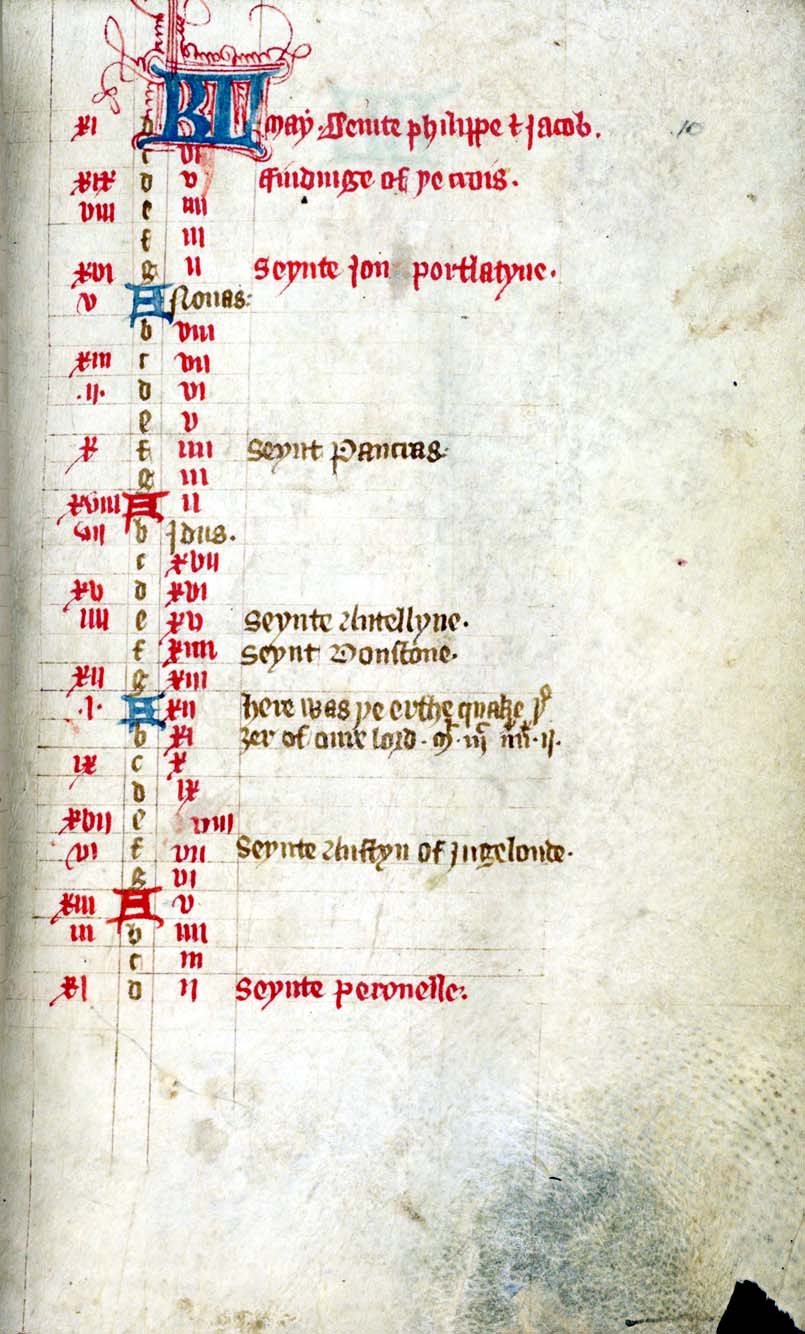 xi b KL may. Seinte philippe & jacob. 10
c vi
xix d v ffindinge of þe crois.
viii e iiii
f iii
xvi g ii Seynte Jon portlatyne.
v A Nonas:
b viii
xiii c vii
.ij. d vi
e v
x f iiii Seynt Pancras.
g iii
xviii A ii
vii b Idus.
c xvii
xv d xvi
iiii e xv Seynte Antellyne.
f xiiii Seynt Donstone.
xii g xiii
.i. A xii here was þe erthe quake þe
b xi ȝer of oure lord . M . iij iiii . ij.
ix c x
d ix
xvii e viii
vi f vii Seynte Austyn of Jngelonde.
g vi
xiiii A v
iii b iiii
c iii
xi d ij Seynte peronelle.